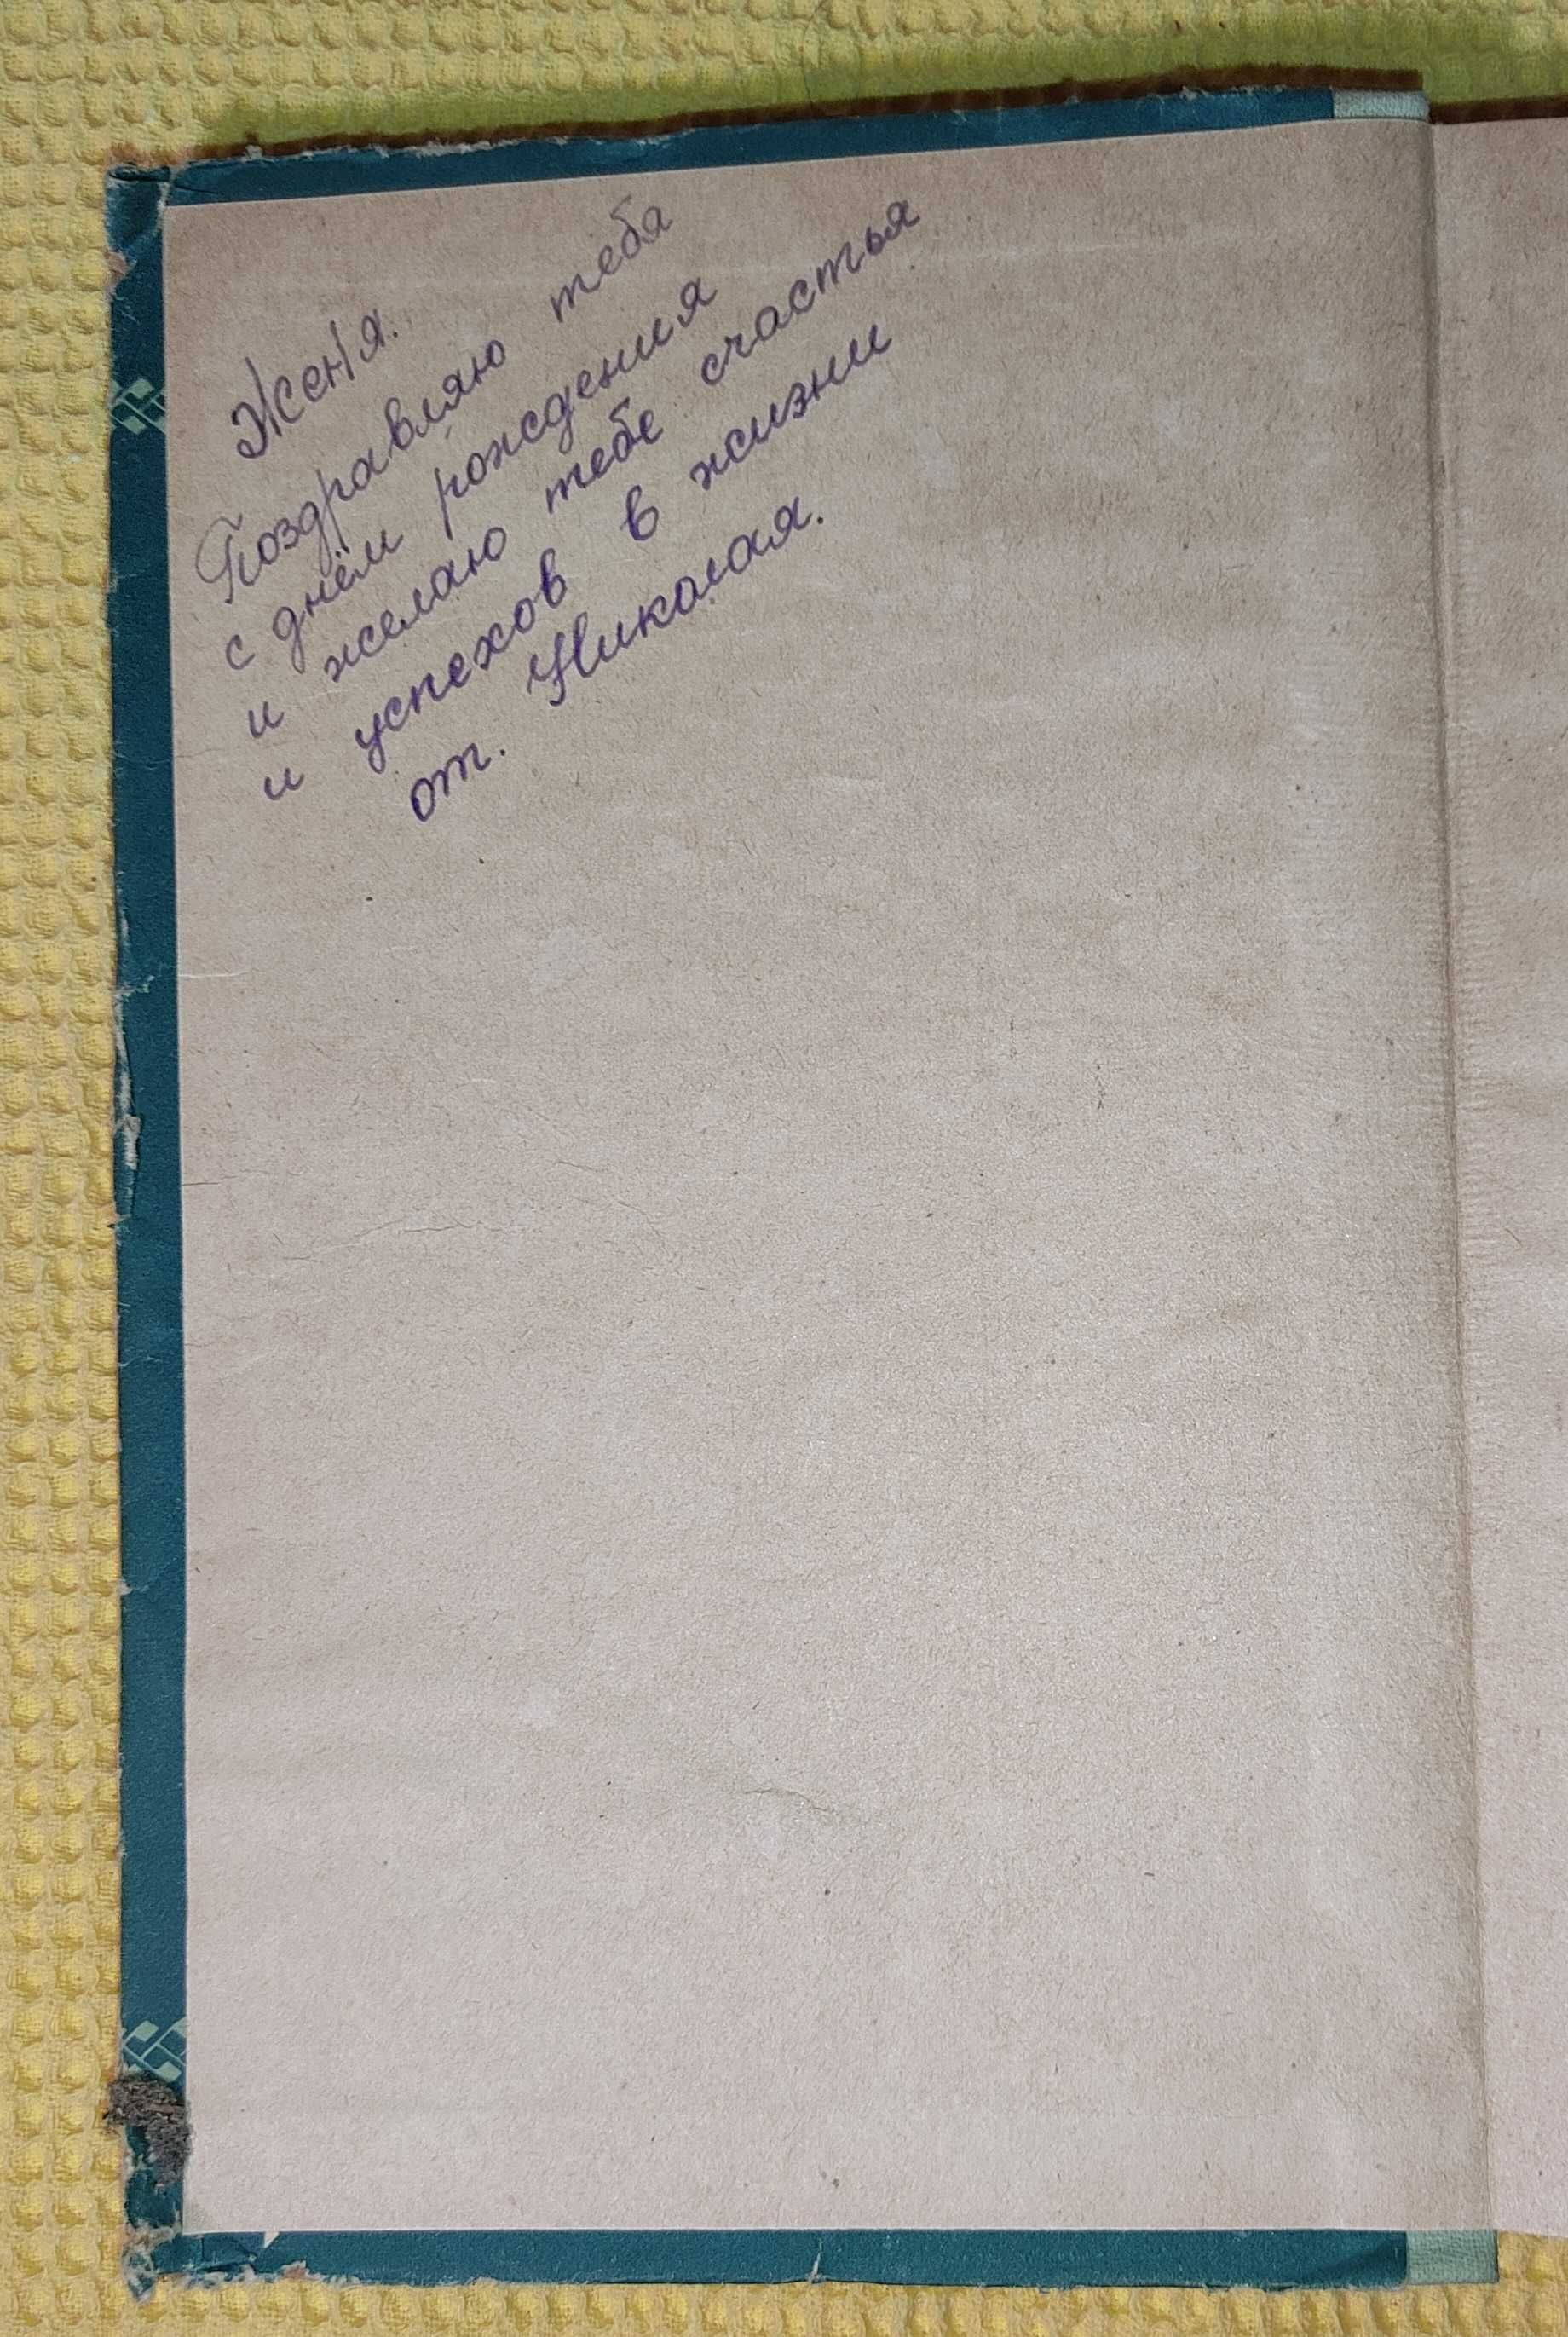 Женя.
Поздравляю тебя
с днём рождения
и желаю тебе счастья
и успехов в жизни
от. Николая.